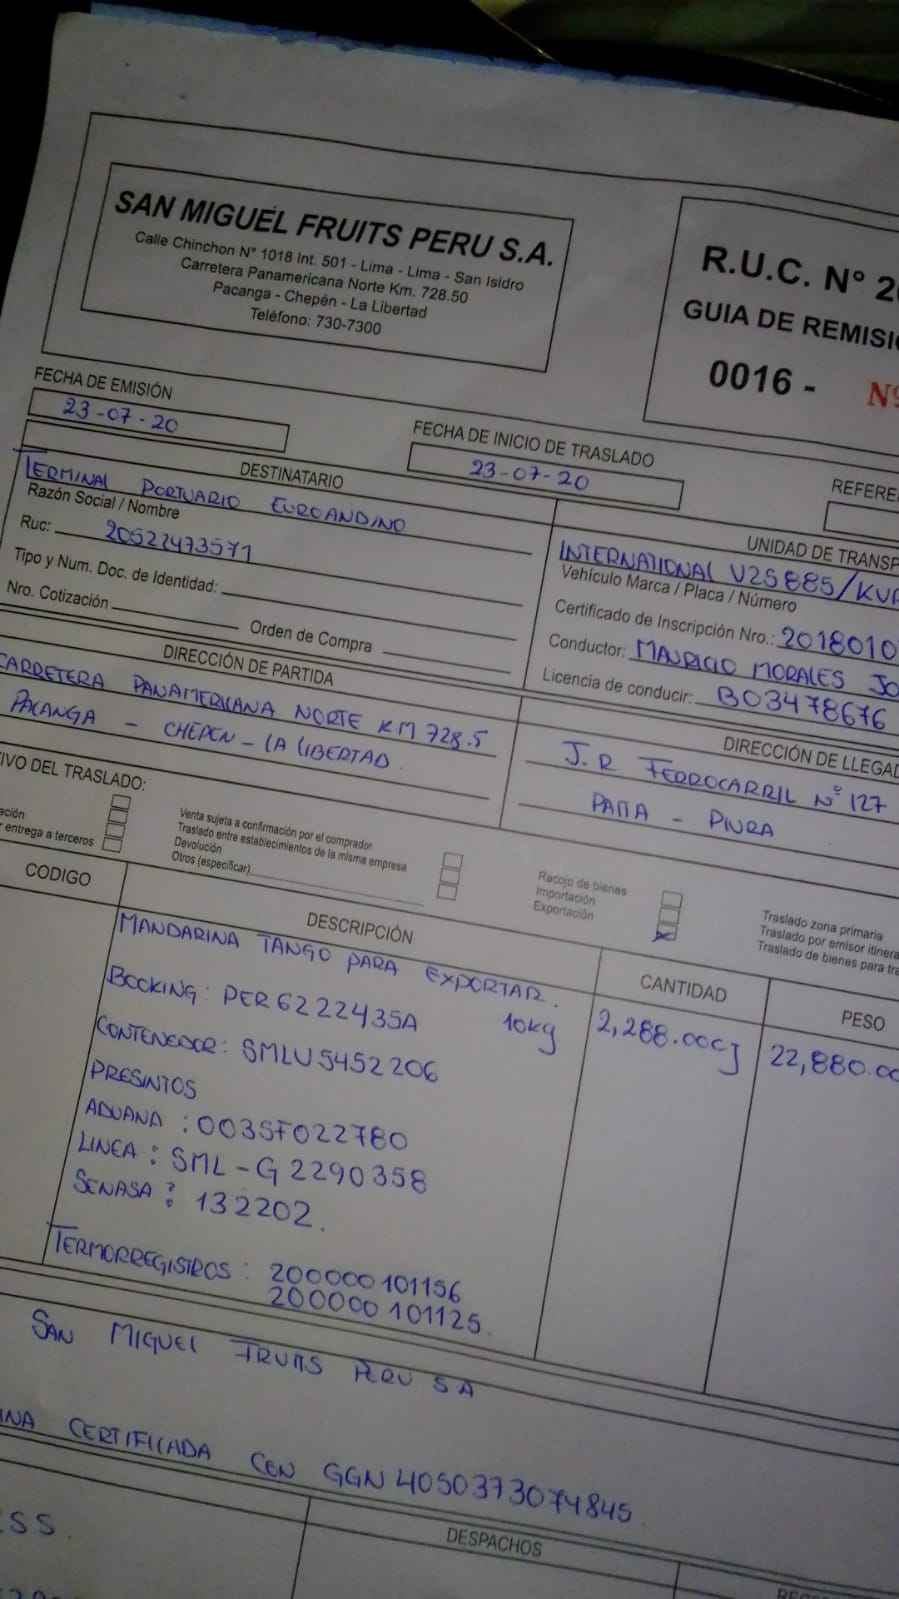 SAN MIGUEL FRUITS PERU S.A.
Calle Chinchon N° 1018 Int. 501 - Lima - Lima - San Isidro
Carretera Panamericana Norte Km. 728.50
Pacanga - Chepén - La Libertad
Teléfono: 730-7300
R.U.C. N° 2
GUIA DE REMISI
0016 - Nº
FECHA DE EMISIÓN
23-07-20
FECHA DE INICIO DE TRASLADO
23-07-20
REFERE
DESTINATARIO
TERMINAL PORTUARIO EUROANDINO
Razón Social / Nombre
Ruc: 20522473571
Tipo y Num. Doc. de Identidad:
Nro. Cotización Orden de Compra
UNIDAD DE TRANSP
INTERNATIONAL V2S885/KV
Vehículo Marca / Placa / Número
Certificado de Inscripción Nro.: 2018010
Conductor: MAURICIO MORALES JO
Licencia de conducir: B03478676
DIRECCIÓN DE PARTIDA
CARRETERA PANAMERICANA NORTE KM 728.5
PACANGA - CHEPEN - LA LIBERTAD
DIRECCIÓN DE LLEGAD
J.R FERROCARRIL Nº 127
PAITA - PIURA
IVO DEL TRASLADO:
ación
r entrega a terceros
Venta sujeta a confirmación por el comprador
Traslado entre establecimientos de la misma empresa
Devolución
Otros (especificar)
Recojo de bienes
Importación
Exportación
Traslado zona primaria
Traslado por emisor itinera
Traslado de bienes para tra
CODIGO
DESCRIPCIÓN
CANTIDAD
PESO
MANDARINA TANGO PARA EXPORTAR.
10kg 2,288.00CJ 22,880.00
BOOKING: PER6222435A
CONTENEDOR: SMLU5452206
PRESINTOS
ADUANA : 003SF022780
LINEA : SML-G2290358
SENASA : 132202.
TERMORREGISTROS : 200000101156
200000101125.
SAN MIGUEL FRUITS PERU SA
INA CERTIFICADA CON GGN 4050373074845
SS.
DESPACHOS